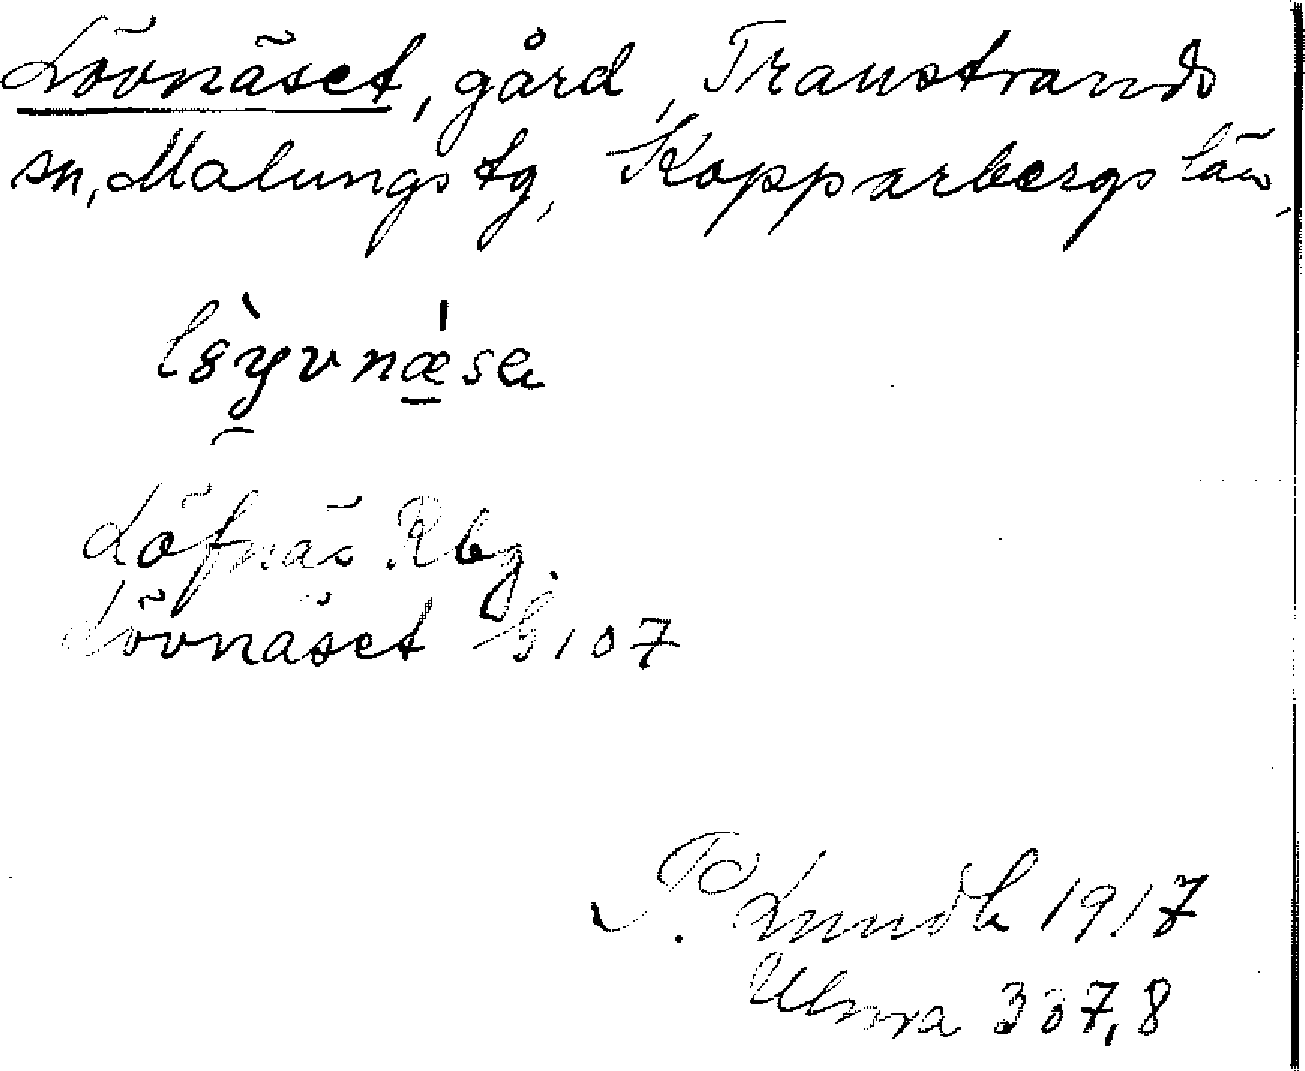 Lövnäset, gård, Transtrands
sn, Malungs tg, Kopparbergs län.
Löfnäs Rbg.
Lövnäset 107
P. Lundh 1917
Ulma 337,8